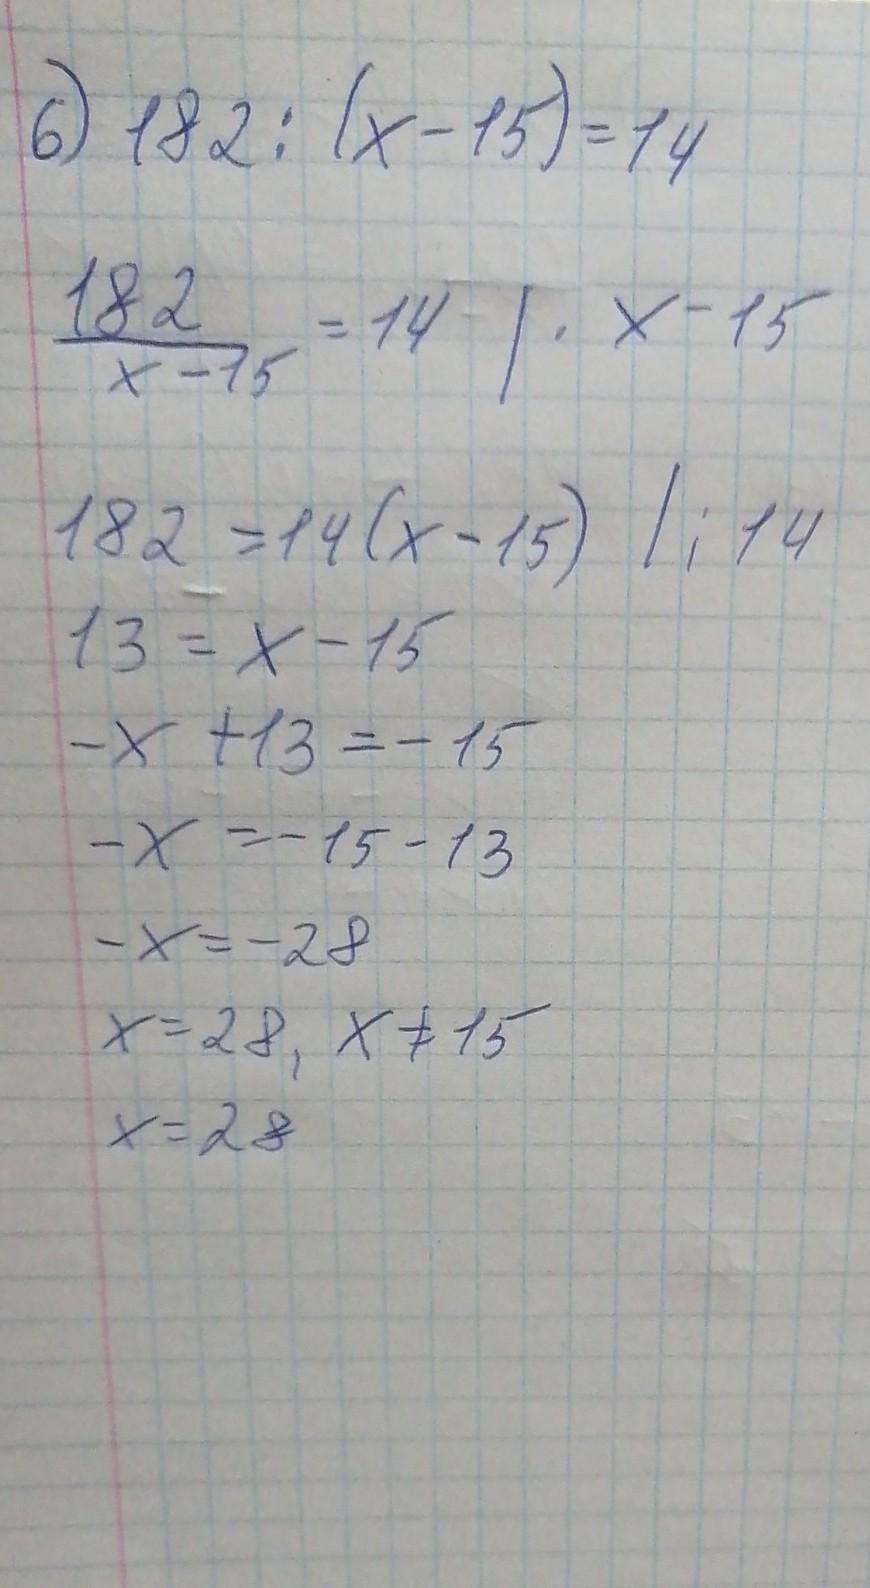 б) 182 : (x - 15) = 14
182
x - 15 = 14 | · x - 15
182 = 14(x - 15) | : 14
13 = x - 15
-x + 13 = -15
-x = -15 - 13
-x = -28
x = 28, x ≠ 15
x = 28